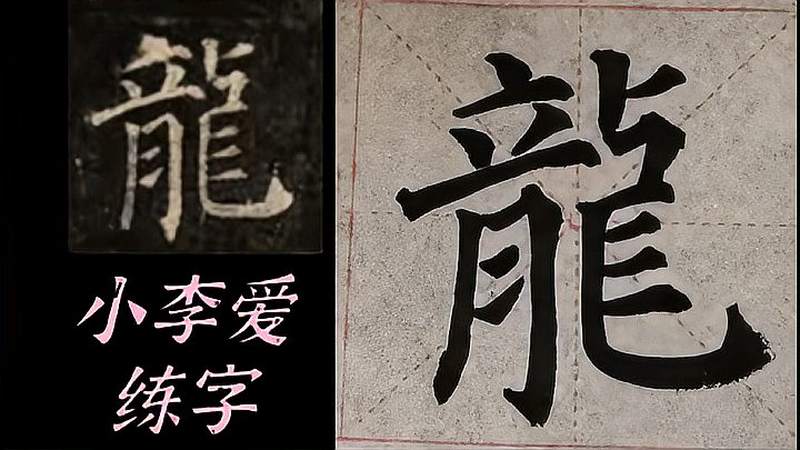 龍
小李爱
练字
龍